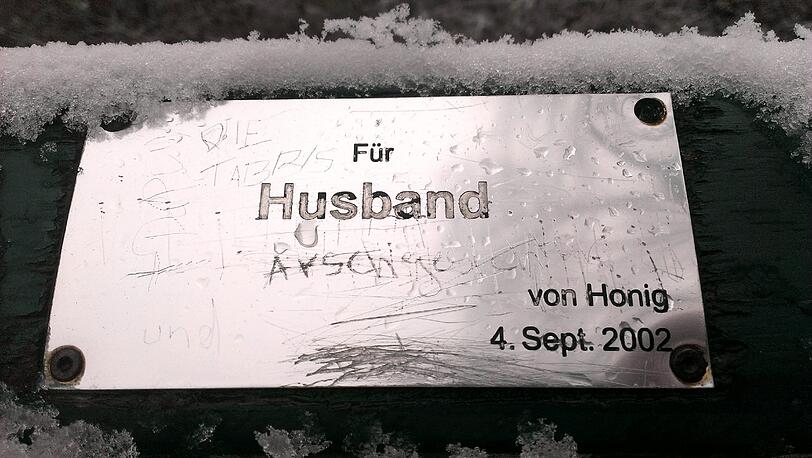 DIE
TABRIS
Für
Husband
und
von Honig
4. Sept. 2002